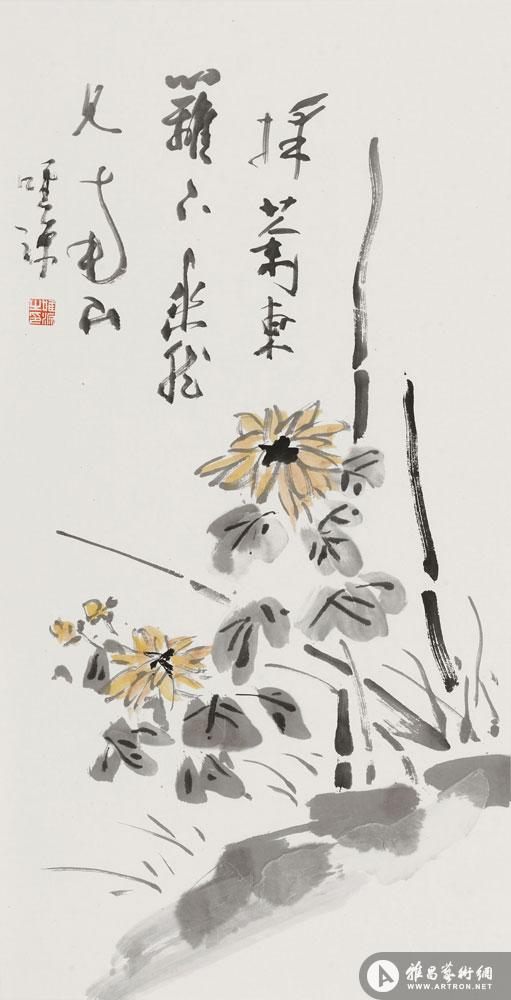 採菊東
籬下悠然
見南山
雅昌藝術網
WWW.ARTRON.NET